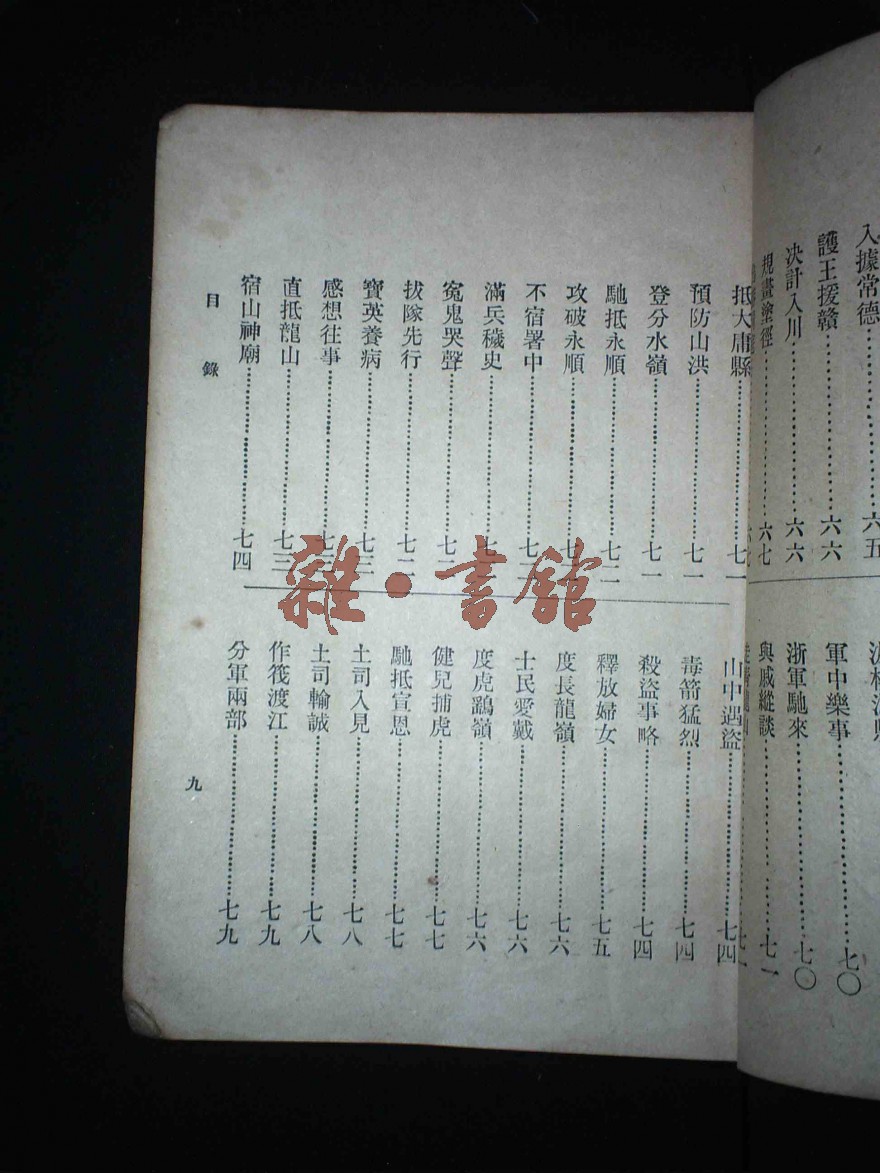 入據常德……六五
護王援贛……六六
決計入川……六六
規畫塗徑……六七
軍中樂事……七〇
浙軍馳來……七〇
與戚縱談……七一
抵大庸縣……七一
預防山洪……七一
登分水嶺……七一
馳抵永順……七二
攻破永順……
不宿署中……
滿兵穢史……
冤鬼哭聲……
拔隊先行……
寶英養病……七三
感想往事……七三
直抵龍山……七三
宿山神廟……七四
山中遇盜……七四
毒箭猛烈……七四
殺盜事略……七四
釋放婦女……七五
度長龍嶺……七六
士民愛戴……七六
度虎鷂嶺……七六
健兒捕虎……七七
馳抵宣恩……七七
土司入見……七八
土司輸誠……七八
作筏渡江……七九
分軍兩部……七九
目錄
九
雜·書館